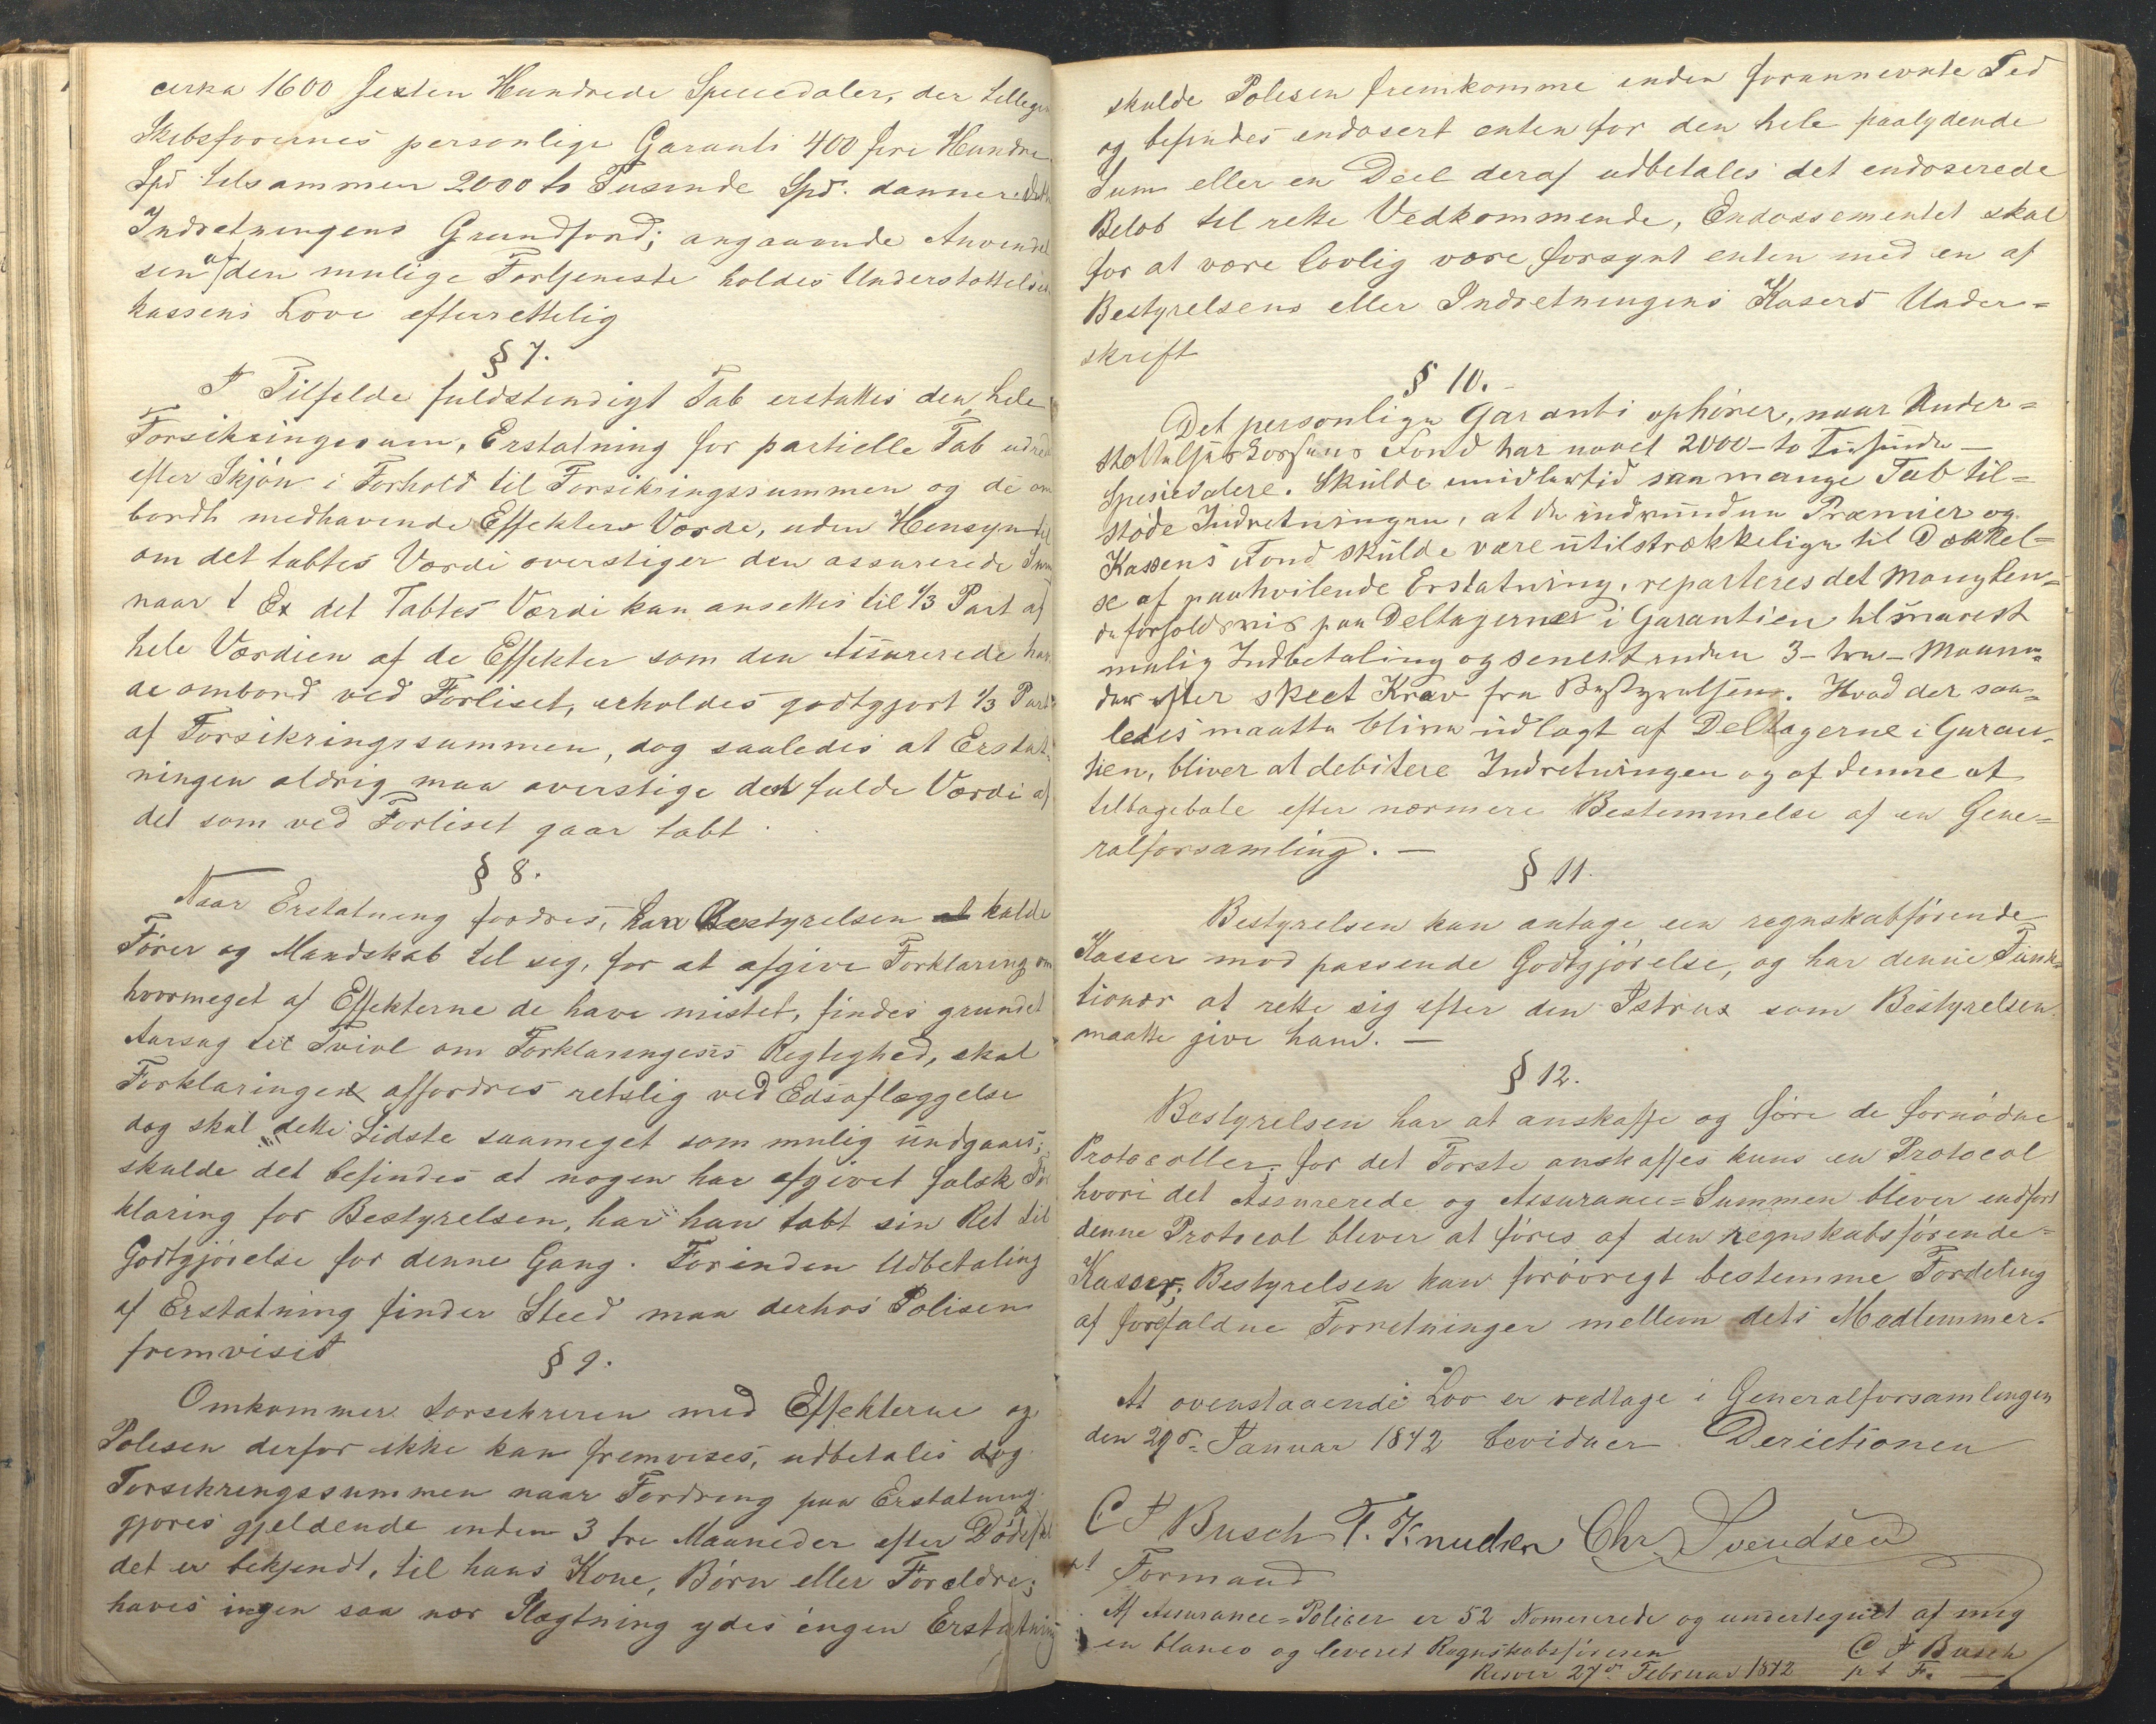 cirka 1600 Sexten Hundrede Speciedaler, der tillegen
Skibsførernes personlige Garanti 400 fire Hundre
Spd tilsammen 2000 to Tusinde Spd. danner
Indretningens Grundfond; angaaende Anvendel
sen af den mulige Fortjeneste holdes Understøttelses
kassens Love efterrettelig
§ 7.
I Tilfælde fuldstendigt Tab erstattes den hele
Forsikringssum, Erstatning for partielle Tab udred
efter Skjøn i Forhold til Forsikringssummen og de om
bordh medhavende Effekters Værde, uden Hensyn til
om det tabtes Værdi overstiger den assurerede Sum
naar t Ex det Tabtes Værdi kan ansettes til 1/3 Part af
hele Værdien af de Effekter som den Assurerede hav
de ombord ved Forliset, erholdes godtgjort 1/3 Part
af Forsikringssummen, dog saaledes at Erstat
ningen aldrig maa overstige den fulde Værdi af
det som ved Forliset gaar tabt.
§ 8.
Naar Erstatning fordres, kan Bestyrelsen at kalde
Fører og Mandskab til sig, for at afgive Forklaring om
hvormeget af Effekterne de have mistet, findes grundet
Aarsag til Tvivl om Forklaringens Rigtighed, skal
Forklaringen affordres retslig ved Edsaflæggelse
dog skal dette Sidste saameget som mulig undgaaes;
skulde det befindes at nogen har afgivet falsk For
klaring for Bestyrelsen, har han tabt sin Ret til
Godtgjørelse for denne Gang. Forinden Udbetaling
af Erstatning finder Sted maa derhos Polisen
fremvises
§ 9.
Omkommer Forsikreren med Effekterne og
Polisen derfor ikke kan fremvises, udbetales dog
Forsikringssummen naar Fordring paa Erstatning
gjøres gjeldende inden 3 tre Maaneder efter Dødsfal
det er bekjendt, til hans Kone, Børn eller Forældre;
haves ingen saa nær Slægtning ydes ingen Erstatning
skulde Polisen fremkomme inden forannevnte Tid
og befindes endosert enten for den hele paalydende
Sum eller en Deel deraf udbetales det endoserede
Beløb til rette Vedkommende, Endossementet skal
for at være lovlig være forsynt enten med en af
Bestyrelsens eller Indretningens Kasers Under=
skrift
§ 10.
Det personlige Garanti ophører, naar Under=
støttelseskassens Fond har naaet 2000 - to Tusinde -
Spesiedalere. Skulde imidlertid saa mange Tab til=
støde Indretningen, at de indvundne Præmier og
Kassens Fond skulde være utilstrækkelige til Dækkel=
se af paahvilende Erstatning, reparteres det Manglen=
de forholdsvis paa Deltagerne i Garantien til snarest
mulig Indbetaling og senest inden 3 - tre - Maane
der efter skeet Krav fra Bestyrelsen. Hvad der saa=
ledes maatte blive udlagt af Deltagerne i Garan
tien, bliver at debitere Indretningen og af denne at
tilbagebale efter nærmere Bestemmelse af en Gene=
ralforsamling. —
§ 11.
Bestyrelsen kan antage en regnskabførende
Kasser mod passende Godtgjørelse, og har denne Funk=
tionær at rette sig efter den Istrux som Bestyrelsen
maatte give ham. —
§ 12.
Bestyrelsen har at anskaffe og føre de fornødne
Protocoller, for det Første anskaffes kuns en Protocol
hvori det Assurerede og Assurance=Summen bliver indført
denne Protocol bliver at føres af den regnskabsførende=
Kasser; Bestyrelsen kan forøvrigt bestemme Fordeling
af forefaldne Forretninger mellem dets Medlemmer.
At ovenstaaende Lov er vedtage i Generalforsamlingen
den 29de Januar 1872 bevidner Derictionen
C F Busch T. Knudsen Chr. Svendsen
Formand
Af Assurance=Policer er 52 Nomererede og undertegnet af mig
in blanco og leveret Regnskabsføreren C F Busch
Risøer 27de Februar 1872 p t F.